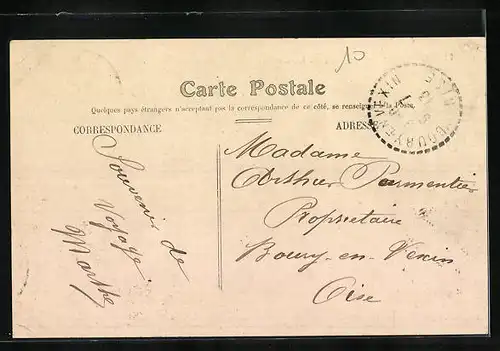 10
Carte Postale
Quelques pays étrangers n'acceptent pas la correspondance de ce côté, se renseigner à la Poste.
CORRESPONDANCE
ADRES
BOURY-EN-VEXIN
Souvenir de
Voyage
Marthe
Madame
Arthur Parmentier
Propriétaire
Boury-en-Vexin
Oise